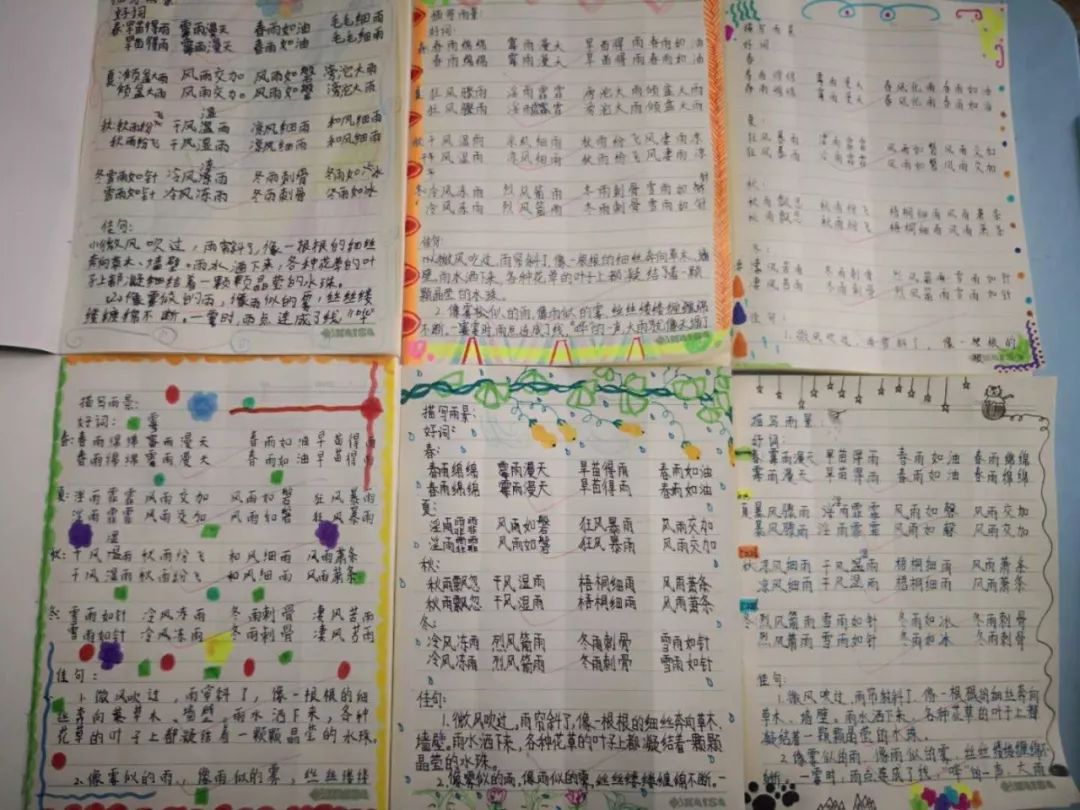 好词
春:旱苗得雨 霪雨漫天 春雨如油 毛毛细雨
旱苗得雨 霪雨漫天 春雨如油 毛毛细雨
夏:倾盆大雨 风雨交加 风雨如磐 滂沱大雨
倾盆大雨 风雨交加。 风雨如磐 滂沱大雨
秋:秋雨纷飞 干风湿雨 凉风细雨 和风细雨
秋雨纷飞 干风湿雨 凉风细雨 和风细雨
冬:雪雨如针 冷风冻雨 冬雨刺骨 冬雨如冰
雪雨如针 冷风冻雨 冬雨刺骨 冬雨如冰
佳句:
微风吹过,雨帘斜了,像一根根的细丝
奔向草木、墙壁。雨水洒下来,各种花草的叶
子上都凝结着一颗颗晶莹的水珠。
像雾似的雨,像雨似的雾,丝丝缕
缕缠绵不断。一霎时,雨点连成了线,
描写雨景:
好词:
春:春雨绵绵 霪雨漫天 旱苗得雨 春雨如油
春雨绵绵 霪雨漫天 旱苗得雨 春雨如油
夏:狂风骤雨 淫雨霏霏 滂沱大雨 倾盆大雨
狂风骤雨 淫雨霏霏 滂沱大雨 倾盆大雨
秋:干风湿雨 凉风细雨 秋雨纷飞 风凄雨凉
干风湿雨 凉风细雨 秋雨纷飞 风凄雨凉
冬:冷风冻雨 烈风箭雨 冬雨刺骨 雪雨如针
冷风冻雨 烈风箭雨 冬雨刺骨 雪雨如针
佳句:
微风吹过,雨帘斜了,像一根根的细丝奔向草木、墙
壁,雨水洒下来,各种花草的叶子上都凝结了着一颗
颗晶莹的水珠。
2.像雾似的雨,像雨似的雾,丝丝缕缕缠绵
不断,一霎时,雨点连成了线,“哗”的一声,大雨就像天塌了
描写雨景
好词:
春:
春雨绵绵 霪雨漫天 春风化雨 春雨如油
春雨绵绵 霪雨漫天 春风化雨 春雨如油
夏:
狂风暴雨 淫雨霏霏 风雨如磐 风雨交加
狂风暴雨 淫雨霏霏 风雨如磐 风雨交加
秋:
秋雨飘忽 秋雨纷飞 梧桐细雨 风雨萧条
秋雨飘忽 秋雨纷飞 梧桐细雨 风雨萧条
冬:
凄风苦雨 冬雨刺骨 烈风箭雨 雪雨如针
凄风苦雨 冬雨刺骨 烈风箭雨 雪雨如针
佳句:
1.微风吹过,雨帘斜了,像一根根的
描写雨景:
好词:
春:春雨绵绵 霪雨漫天 春雨如油 旱苗得雨
春雨绵绵 霪雨漫天 春雨如油 旱苗得雨
夏:淫雨霏霏 风雨交加 风雨如磐 狂风暴雨
淫雨霏霏 风雨交加 风雨如磐 狂风暴雨
秋:干风湿雨 秋雨纷飞 和风细雨 风雨萧条
干风湿雨 秋雨纷飞 和风细雨 风雨萧条
冬:雪雨如针 冷风冻雨 冬雨刺骨 凄风苦雨
雪雨如针 冷风冻雨 冬雨刺骨 凄风苦雨
佳句:
1.微风吹过,雨帘斜了,像一根根的细
丝奔向草木、墙壁。雨水洒下来,各种
花草的叶子上都凝结着一颗颗晶莹的水珠。
2.像雾似的雨,像雨似的雾,丝丝缕缕
描写雨景:
好词:
春:
春雨绵绵 霪雨漫天 旱苗得雨 春雨如油
春雨绵绵 霪雨漫天 旱苗得雨 春雨如油
夏:
淫雨霏霏 风雨如磐 狂风暴雨 风雨交加
淫雨霏霏 风雨如磐 狂风暴雨 风雨交加
秋:
秋雨飘忽 干风湿雨 梧桐细雨 风雨萧条
秋雨飘忽 干风湿雨 梧桐细雨 风雨萧条
冬:
冷风冻雨 烈风箭雨 冬雨刺骨 雪雨如针
冷风冻雨 烈风箭雨 冬雨刺骨 雪雨如针
佳句:
1.微风吹过,雨帘斜了,像一根根的细丝奔向草木、
墙壁。雨水洒下来,各种花草的叶子上都凝结着一颗颗
晶莹的水珠。
2.像雾似的雨,像雨似的雾,丝丝缕缕缠绵不断。一
描写雨景:
好词:
春:霪雨漫天 旱苗得雨 春雨如油 春雨绵绵
霪雨漫天 旱苗得雨 春雨如油 春雨绵绵
夏:暴风骤雨 淫雨霏霏 风雨如磐 风雨交加
暴风骤雨 淫雨霏霏 风雨如磐 风雨交加
秋:凉风细雨 干风湿雨 梧桐细雨 风雨萧条
凉风细雨 干风湿雨 梧桐细雨 风雨萧条
冬:烈风箭雨 雪雨如针 冬雨如冰 冬雨刺骨
烈风箭雨 雪雨如针 冬雨如冰 冬雨刺骨
佳句:
1.微风吹过,雨帘斜了,像一根根的细丝奔向
草木、墙壁。雨水洒下来,各种花草的叶子上都
凝结着一颗颗晶莹的水珠。
2.像雾似的雨,像雨似的雾,丝丝缕缕缠绵
不断。一霎时,雨点连成了线,“哗”的一声,大雨